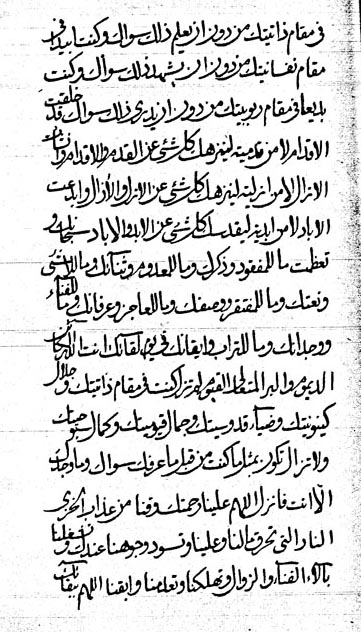 في مقام ذاتيتك من دون ان يعلم ذلك سواك وكنت بديعا في
مقام نفسانيتك من دون ان يشهد ذلك سواك وكنت
بديعا في مقام ربوبيتك من دون ان يدري ذلك سواك قد خلقت
الاقدام لا من قدمية لينزهك كل شيء عن القدم والاقدام و
الازال لا من ازلية لينزهك كل شيء عن الازل والازال وابدعت
الاباد لا من ابدية ليقدسك كل شيء عن الابد والاباد سبحانك و
تعظمت ما للمفقود وذكرك وما للمعدوم وثنائك وما للاشيء
ونعتك وما للمفتقر ووصفك وما للعاجز وعرفانك وما للفناء
ووجدانك وما للتراب وايقانك في يوم لقائك انت الكائن
الديموم والبر المتعالي القيوم لم تزل كنت في مقام ذاتيتك وجلال
كينونيتك وضياء قدوسيتك وجمال قيوميتك وكمال سبوحيتك
ولا تزال تكون بمثل ما كنت من قبل ما عرفك سواك وما وجدك
الا انت فانزل اللهم علينا رحمتك وقنا من عذاب الخزي
النار التي تحرق النار وعلينا وتسود وجوهنا عندك و
بالاء الفناء والزوال وتهلكنا وتعلمنا وابقنا اللهم ببقائك